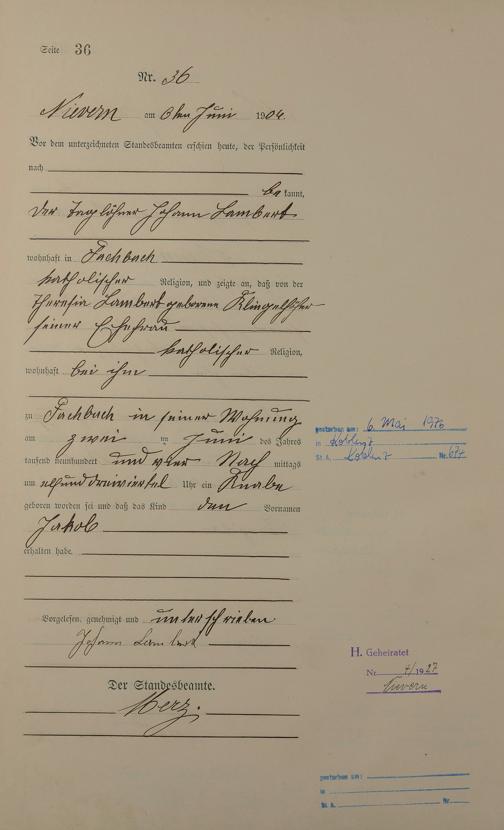 Seite 36
Nr. 36
Nievern am 6ten Juni 1904.
Vor dem unterzeichneten Standesbeamten erschien heute, der Persönlichkeit
nach
bekannt,
der Taglöhner Johann Lambert
wohnhaft in Fachbach
katholischer Religion, und zeigte an, daß von der
Theresia Lambert geborene Klingelhöfer
seiner Ehefrau
katholischer Religion,
wohnhaft bei ihm
zu Fachbach in seiner Wohnung
am zwei im Juni des Jahres
tausend neunhundert und vier Nach mittags
um elfunddreiviertel Uhr ein Knabe
geboren worden sei und daß das Kind den Vornamen
Jakob
erhalten habe.
Vorgelesen, genehmigt und unterschrieben
Johann Lambert
Der Standesbeamte.
Merz.
gestorben am: 6. Mai 1976
in Koblenz
St. A. Koblenz Nr. 677
H. Geheiratet
Nr. 4/1927
Nievern
gestorben am:
in
St. A. Nr.